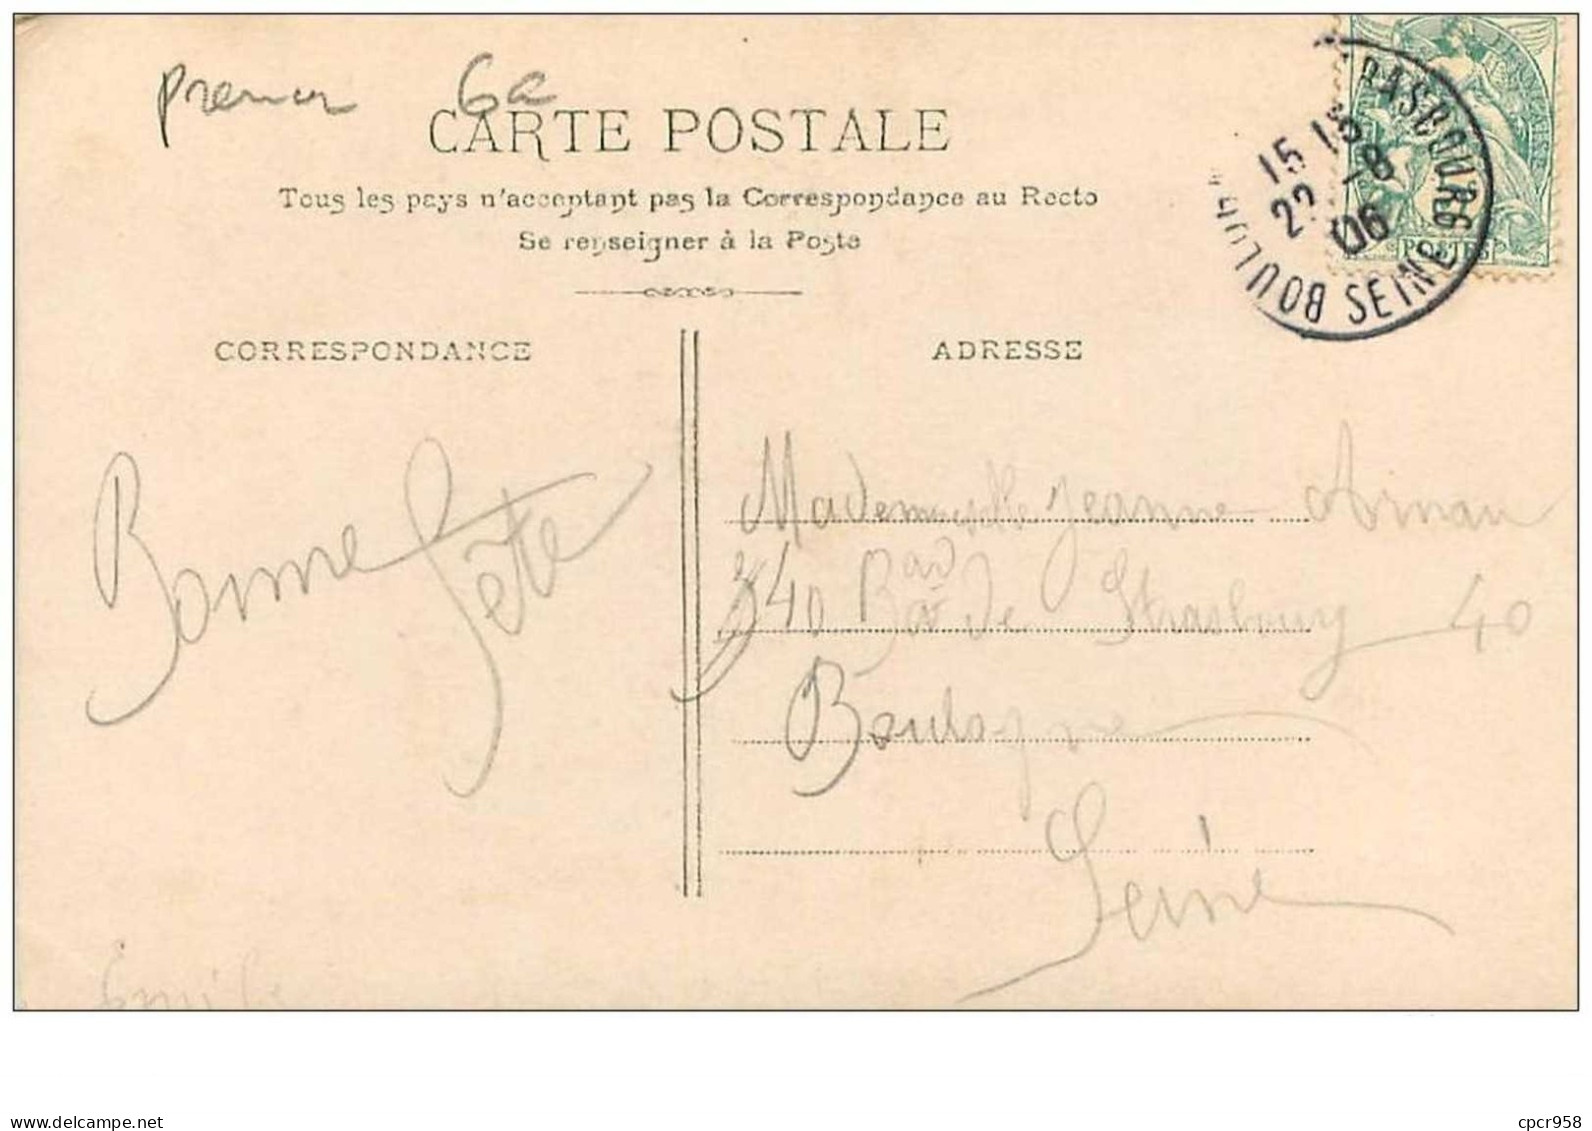 6e
CARTE POSTALE
Tous les pays n'acceptant pas la Correspondance au Recto
Se renseigner à la Poste
15 15
22 -8
06
STRASBOURG
BOULOGNE SEINE
POSTES
CORRESPONDANCE
ADRESSE
Bonne fête
Mademoiselle Jeanne Arnau
40 Bard de Strasbourg 40
Boulogne
Seine
Emile
www.delcampe.net
cpcr958